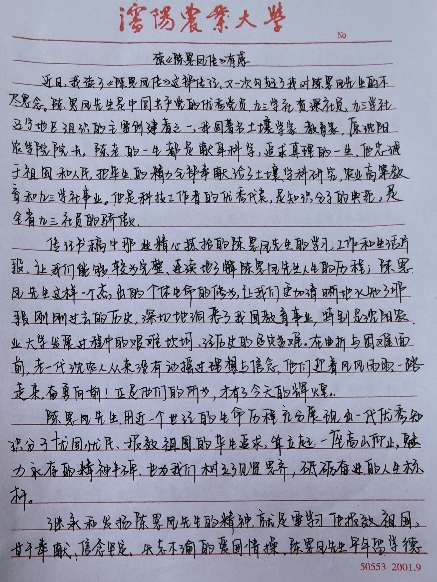 瀋陽農業大學
No
读《陈恩凤传》有感
近日,我读了《陈恩凤传》这部传记,又一次勾起了我对陈恩凤先生的不
尽思念。陈恩凤先生是中国共产党的优秀党员,九三学社资深社员,九三学社
辽宁地区组织的主要创建者之一,我国著名土壤学家、教育家,原沈阳
农学院院长。陈老的一生都是献身科学,追求真理的一生,他忠诚
于祖国和人民,把毕生的精力全部奉献给了土壤学科研究,农业高等教
育和九三学社事业。他是科技工作者的优秀代表,是知识分子的典范,是
全省九三社员的骄傲。
传记书稿中那些精心拣拾的陈恩凤先生的学习、工作和生活片
段,让我们能够较为完整、连续地了解陈恩凤先生人生的历程;陈恩
凤先生这样一个杰出的个体生命的传书,让我们更加清晰地认知了那
段刚刚过去的历史,深切地洞悉了我国教育事业,特别是沈阳农
业大学发展过程中的艰难坎坷、经历史的
在曲折与困难面
前,老一代沈农人从来没有动摇过理想与信念,他们迎着风风雨雨一路
走来,奋勇向前!正是他们的所为,才有了今天的辉煌。
陈恩凤先生用近一个世纪的生命历程充分展现出一代优秀知
识分子忧国忧民、报效祖国的毕生追求,耸立起一座高山仰止、魅
力永存的精神丰碑,也为我们树立了见贤思齐,砥砺奋进的人生标
杆。
继承和发扬陈恩凤先生的精神就是要学习他报效祖国、
甘于奉献、信念坚定、矢志不渝的爱国情操,陈恩凤先生早年留学德
50553 2001.9